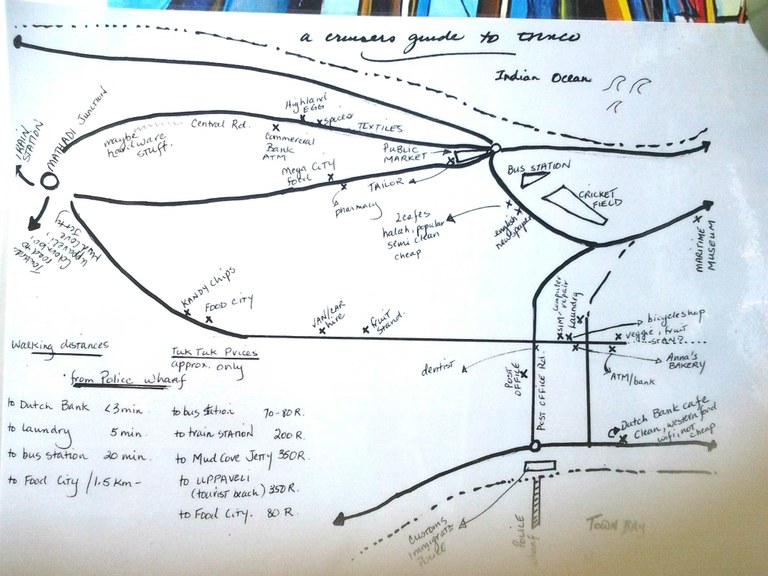 a cruisers guide to trinco
Indian Ocean
TRAIN STATION
MATHADI JUNCTION
maybe hardware stuff.
Central Rd.
Highland EGG
spices
TEXTILES
Commercial Bank ATM
Mega City food
pharmacy
TAILOR
PUBLIC MARKET
BUS STATION
CRICKET FIELD
2 cafes
halah, popular
semi clean
cheap
english newspaper
MARITIME MUSEUM
Mud Cove Jetty
KANDY chips
FOOD CITY
VAN/CAR hire
fruit stand.
SIM. computer repair
Laundry
bicycle shop
veggie, fruit
Anna's BAKERY
ATM/bank
dentist
POST OFFICE
POST OFFICE Rd.
Dutch Bank cafe
Clean, western food
wifi, not cheap
Customs
Immigrate
POLICE wharf
TOWN BAY
Walking distances
from Police Wharf
to Dutch Bank <3 min.
to laundry 5 min.
to bus station 20 min.
to Food City /1.5 Km-
Tuk Tuk Prices
approx. only
to bus station 70-80 R.
to train STATION 200 R.
to Mud Cove Jetty 350R.
to UPPAVELI
(tourist beach) 350 R.
to Food City. 80 R.